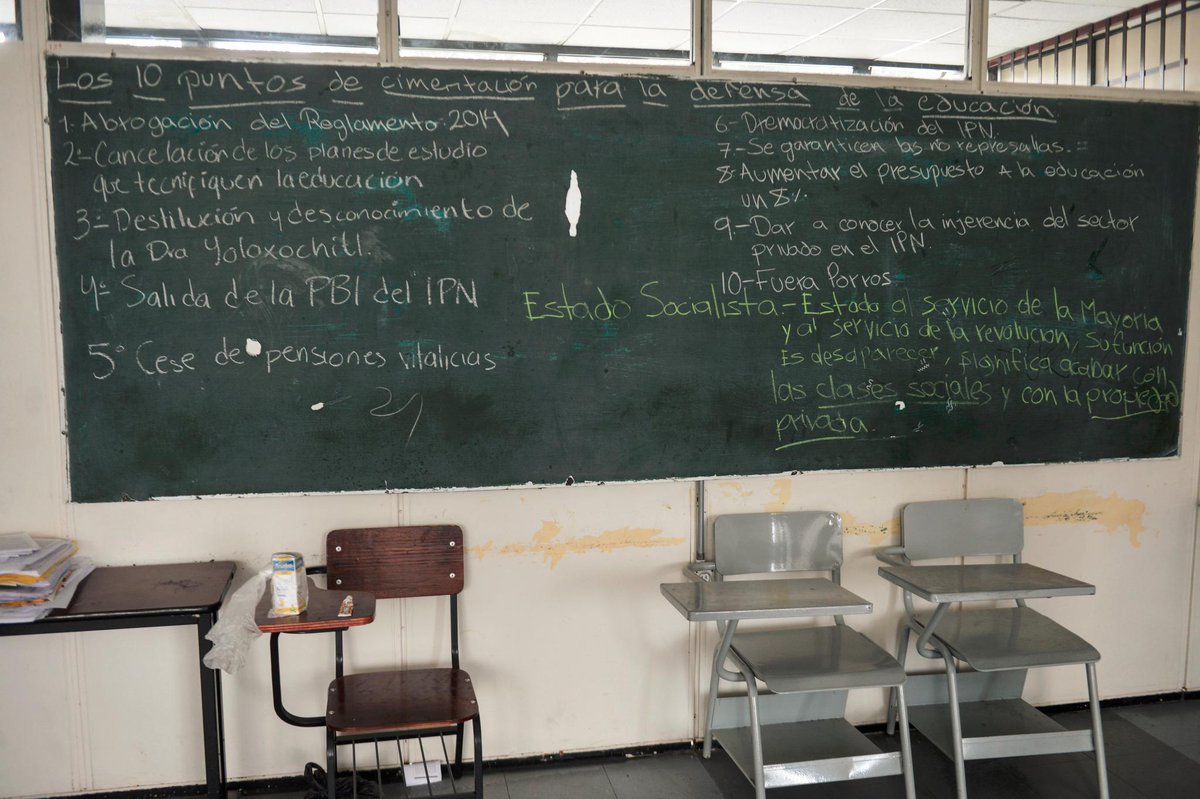 Los 10 puntos de cimentación para la defensa de la educación
1. Abrogación del Reglamento 2014
2.- Cancelación de los planes de estudio
que tecnifiquen la educación
3.- Destitución y desconocimiento de
la Dra Yoloxochitl.
4.- Salida de la PBI del IPN
5.- Cese de pensiones vitalicias
6.- Democratización del IPN.
7.- Se garanticen las no represalias.
8. Aumentar el presupuesto a la educación
un 8%
9.- Dar a conocer la injerencia del sector
privado en el IPN.
10-Fuera Porros
Estado Socialista.- Estado al servicio de la Mayoria
y al servicio de la revolucion, su función
Es desaparecer, significa acabar con
las clases sociales y con la propiedad
privada.